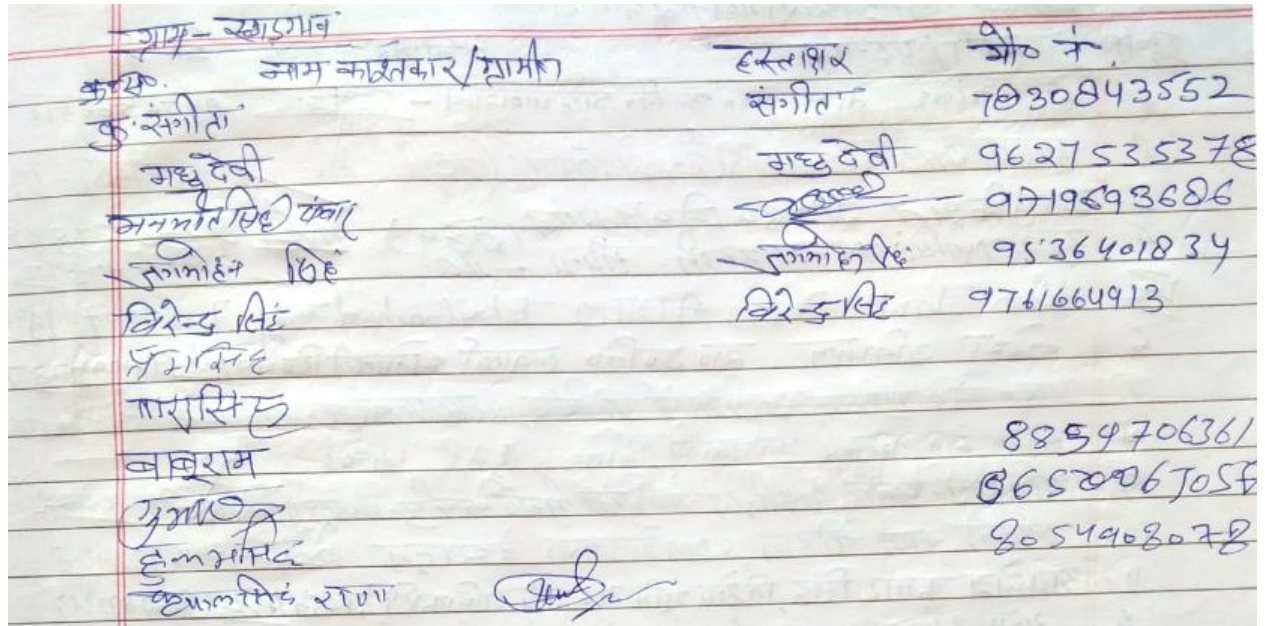 ग्राम - खाडगांव
क्र०सं० नाम काश्तकार/ग्रामीण हस्ताक्षर मो० नं.
कु. संगीता संगीता 7830843552
मधु देवी मधु देवी 9627535378
मनमोहन सिंह 9719693686
जगमोहन सिंह जगमोहन सिंह 9536401834
विरेन्द्र सिंह विरेन्द्र सिंह 9761664913
प्रेम सिंह
तारा सिंह
बाबूराम 8859706361
8054908078
हुकम सिंह
कृपाल सिंह राणा